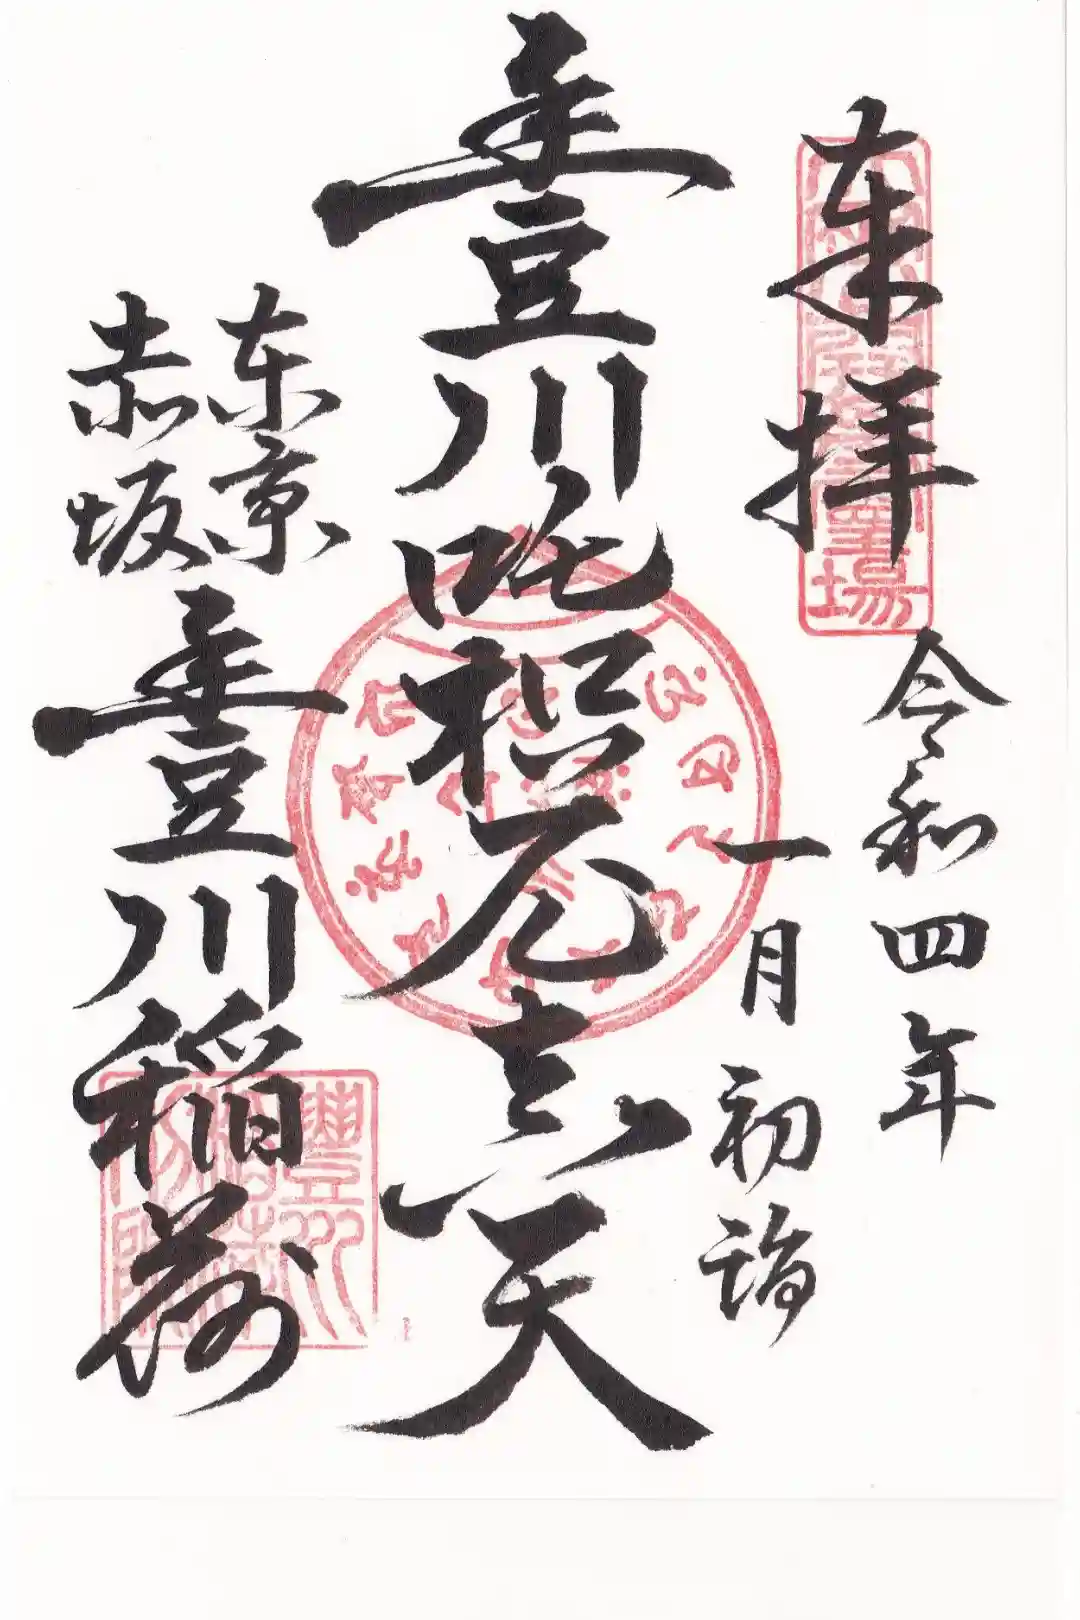 奉拝
令和四年
一月初詣
豊川吒枳尼真天
東京
赤坂
豊川稲荷
豐川
稲荷
別院